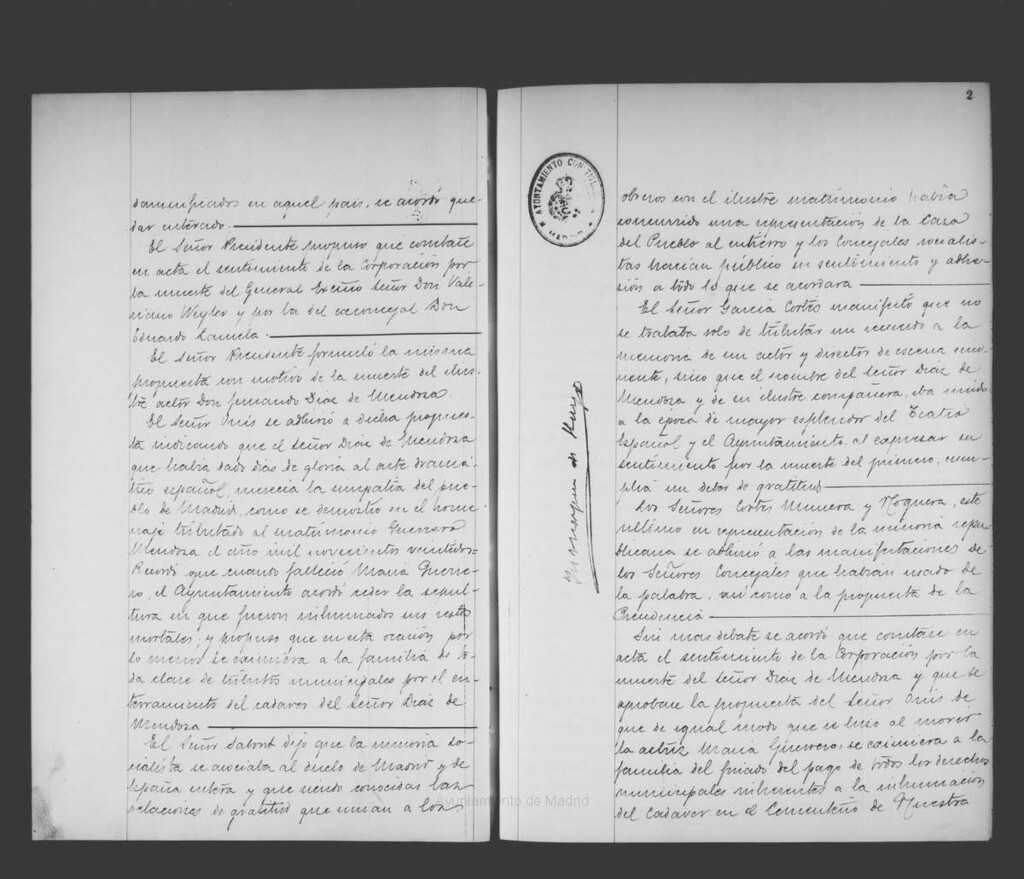 damnificados en aquel pais, se acordó que-
dar enterado.
El Señor Presidente propuso que constase
en acta el sentimiento de la Corporación por
la muerte del General Excmo Señor Don Vale-
riano Weyler y por la del exconcejal Don
Eduardo Lamela.
El Señor Presidente formuló la misma
propuesta con motivo de la muerte del ilus-
tre actor Don Fernando Diaz de Mendoza.
El Señor Onis se adhirió a dicha propues-
ta indicando que el Señor Diaz de Mendoza
que habia dado dias de gloria al arte dramá-
tico español, merecia la simpatia del pue-
blo de Madrid, como se demostró en el home-
naje tributado al matrimonio Guerrero
Mendoza el año mil novecientos veintidos.
Recordó que cuando falleció Maria Guerre-
ro, el Ayuntamiento acordó ceder la sepul-
tura en que fueron inhumados sus restos
mortales; y propuso que en esta ocasión por
lo menos se eximiera a la familia de to-
da clase de tributos municipales por el en-
terramiento del cadaver del Señor Diaz de
Mendoza
El Señor Saborit dijo que la minoria so-
cialista se asociaba al duelo de Madrid y de
España entera y que siendo conocidas las
relaciones de gratitud que unian a los
Ayuntamiento de Madrid
2
AYUNTAMIENTO
MADRID
obreros con el ilustre matrimonio habia
concurrido una representación de la Casa
del Pueblo al entierro y los Concejales socialis-
tas hacian público su sentimiento y adhe-
sión a todo lo que se acordara
El Señor Garcia Cortés manifestó que no
se trataba solo de tributar un recuerdo a la
memoria de un actor y director de escena emi-
nente, sino que el nombre del Señor Diaz de
Mendoza y de su ilustre compañera, iba unido
a la época de mayor esplendor del Teatro
Español y el Ayuntamiento al expresar su
sentimiento por la muerte del primero, cum-
plia un deber de gratitud
Los Señores Cortés Munera y Noguera, este
ultimo en representación de la minoria repu-
blicana se adhirió a las manifestaciones de
los Señores Concejales que habian usado de
la palabra, asi como a la propuesta de la
Presidencia
Sin mas debate se acordó que constase en
acta el sentimiento de la Corporación por la
muerte del Señor Diaz de Mendoza y que se
aprobase la propuesta del Señor Onis de
que de igual modo que se hizo al morir
la actriz Maria Guerrero, se eximiera a la
familia del finado del pago de todos los derechos
municipales inherentes a la inhumación
del cadaver en el Cementerio de Nuestra